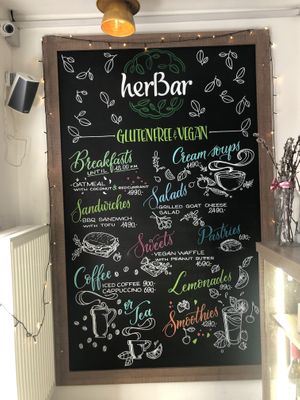 herBar
GLUTENFREE & VEGAN
Breakfasts
UNTIL
OATMEAL
WITH COCONUT & REDCURRANT
Cream soups
1190.-
Sandwiches
BBQ SANDWICH
WITH TOFU 1490.-
Salads
GRILLED GOAT CHEESE
SALAD 2490.-
Sweets
VEGAN WAFFLE
WITH PEANUT BUTTER
Pastries
Coffee
ICED COFFEE 900
CAPPUCCINO 690
or Tea
Lemonades
Smoothies